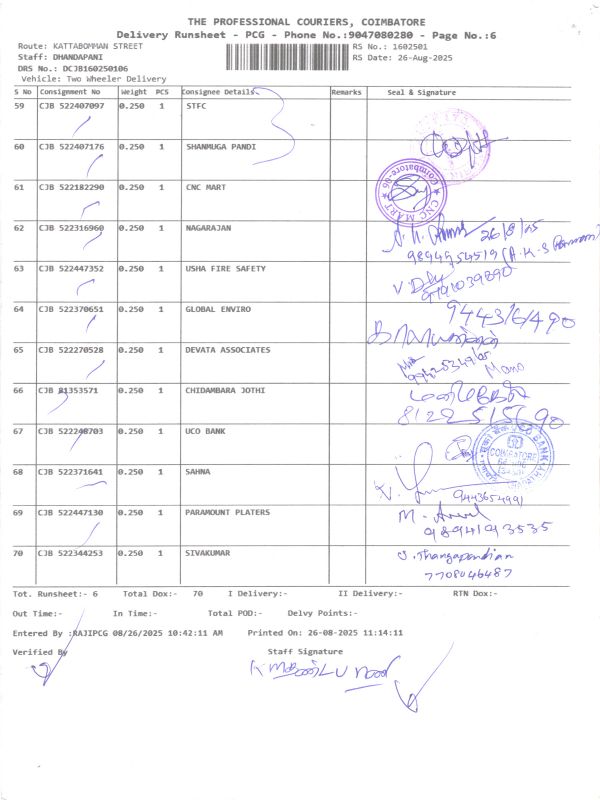 THE PROFESSIONAL COURIERS, COIMBATORE
Delivery Runsheet - PCG - Phone No.:9047080280 - Page No.:6
Route: KATTABOMMAN STREET RS No.: 1602501
Staff: DHANDAPANI RS Date: 26-Aug-2025
DRS No.: DCJB160250106
Vehicle: Two Wheeler Delivery
S No Consignment No Weight PCS Consignee Details Remarks Seal & Signature
59 CJB 522407097 0.250 1 STFC
60 CJB 522407176 0.250 1 SHANMUGA PANDI
61 CJB 522182290 0.250 1 CNC MART
Coimbatore-06
CNC MART
62 CJB 522316960 0.250 1 NAGARAJAN 26/8/25
63 CJB 522447352 0.250 1 USHA FIRE SAFETY
64 CJB 522370651 0.250 1 GLOBAL ENVIRO
65 CJB 522270528 0.250 1 DEVATA ASSOCIATES
Mano
66 CJB 81353571 0.250 1 CHIDAMBARA JOTHI
67 CJB 522248703 0.250 1 UCO BANK
COIMBATORE
68 CJB 522371641 0.250 1 SAHNA
69 CJB 522447130 0.250 1 PARAMOUNT PLATERS
9894193535
70 CJB 522344253 0.250 1 SIVAKUMAR
Thangapandian
7708046487
Tot. Runsheet:- 6 Total Dox:- 70 I Delivery:- II Delivery:- RTN Dox:-
Out Time:- In Time:- Total POD:- Delvy Points:-
Entered By :RAJIPCG 08/26/2025 10:42:11 AM Printed On: 26-08-2025 11:14:11
Verified By Staff Signature